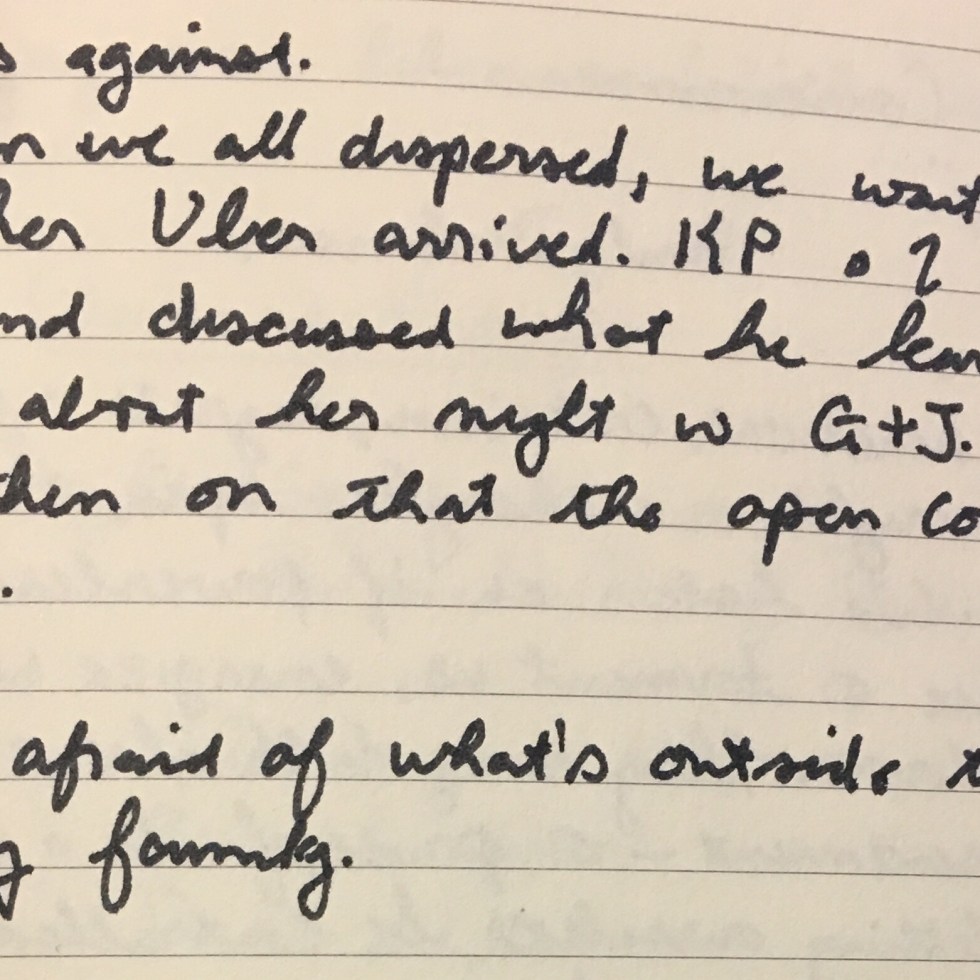 s against.
n we all dispersed, we wait
her Uber arrived. KP
nd discussed what he lear
about her night w G+J.
then on that the open co
.
afraid of what's outside t
y family.